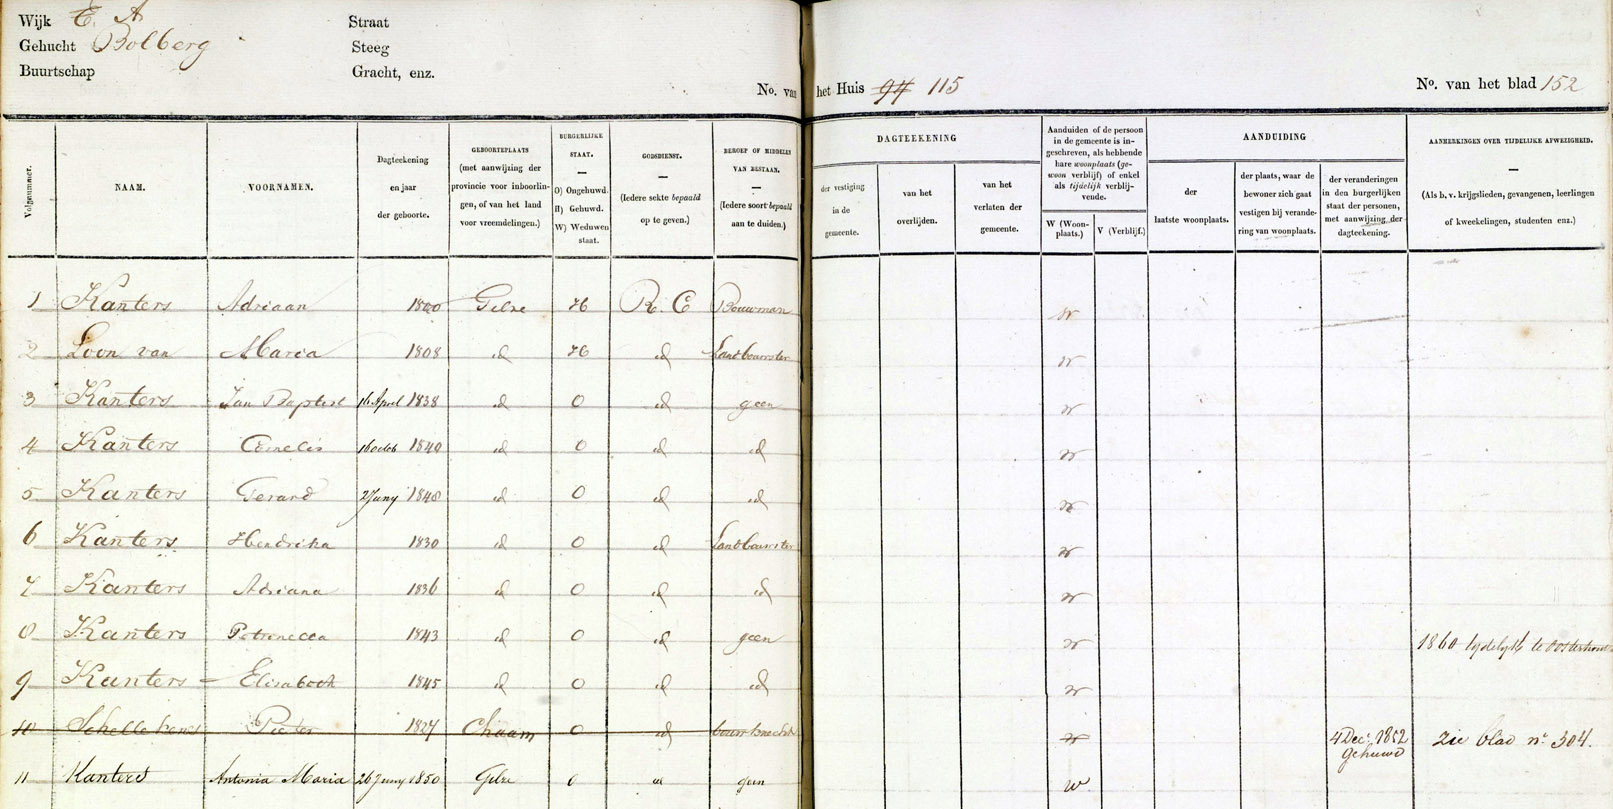 Wijk E. A Straat
Gehucht Bolberg Steeg
Buurtschap Gracht, enz.
No. van het Huis 94 115 No. van het blad 152
Volgnummer.
NAAM.
VOORNAMEN.
Dagteekening
en jaar
der geboorte.
GEBOORTEPLAATS
(met aanwijzing der
provincie voor inboorlin-
gen, of van het land
voor vreemdelingen.)
BURGERLIJKE
STAAT.
O) Ongehuwd.
H) Gehuwd.
W) Weduwen
staat.
GODSDIENST.
(Iedere sekte bepaald
op te geven.)
BEROEP OF MIDDELEN
VAN BESTAAN.
(Iedere soort bepaald
aan te duiden.)
DAGTEEKENING
der vestiging
in de
gemeente.
van het
overlijden.
van het
verlaten der
gemeente.
Aanduiden of de persoon
in de gemeente is in-
geschreven, als hebbende
hare woonplaats (ge-
woon verblijf) of enkel
als tijdelijk verblij-
vende.
W (Woon-
plaats.)
V (Verblijf.)
AANDUIDING
der
laatste woonplaats.
de plaats, waar de
bewoner zich gaat
vestigen bij verande-
ring van woonplaats.
der veranderingen
in den burgerlijken
staat der personen,
met aanwijzing der
dagteekening.
AANMERKINGEN OVER TIJDELIJKE AFWEZIGHEID.
(Als b. v. krijgslieden, gevangenen, leerlingen
of kweekelingen, studenten enz.)
1 Kanters Adriaan 1800 Gilze H R. C Bouwman W
2 Loon van Maria 1808 id H id Landbouwster W
3 Kanters Jan Baptist 16 April 1838 id O id geen W
4 Kanters Cornelis 16 octob 1840 id O id id W
5 Kanters Gerard 2 Juny 1848 id O id id W
6 Kanters Hendrika 1830 id O id Landbouwster W
7 Kanters Adriana 1836 id O id id W
8 Kanters Petronella 1843 id O id geen W 1860 tydelyk te Oosterhout
9 Kanters Elisabeth 1845 id O id id W
10 Schellekens Pieter 1827 Chaam O id bouwknecht W 4 Dec: 1852 gehuwd Zie blad no. 304.
11 Kanters Antonia Maria 26 Juny 1850 Gilze O id geen W